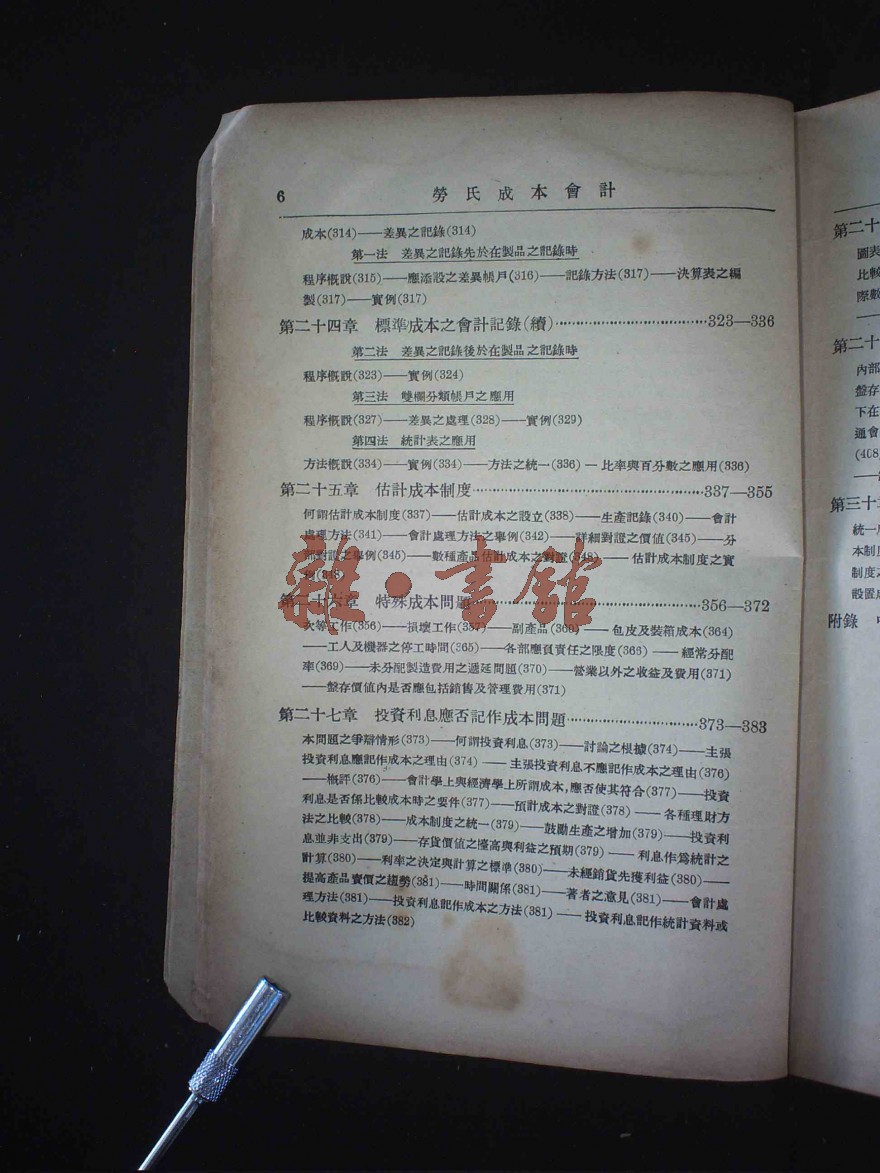 6 勞氏成本會計
成本(314)——差異之記錄(314)
第一法 差異之記錄先於在製品之記錄時
程序概說(315)——應添設之差異帳戶(316)——記錄方法(317)——決算表之編
製(317)——實例(317)
第二十四章 標準成本之會計記錄(續)……323—336
第二法 差異之記錄後於在製品之記錄時
程序概說(323)——實例(324)
第三法 雙欄分類帳戶之應用
程序概說(327)——差異之處理(328)——實例(329)
第四法 統計表之應用
方法概說(334)——實例(334)——方法之統一(336)—比率與百分數之應用(336)
第二十五章 估計成本制度……337—355
何謂估計成本制度(337)——估計成本之設立(338)——生產記錄(340)——會計
處理方法(341)——會計處理方法之舉例(342)——詳細對證之價值(345)——分
部對證之舉例(345)——數種產品估計成本之對證(348)——估計成本制度之實
例(348)
第二十六章 特殊成本問題……356—372
次等工作(356)——損壞工作(357)——副產品(360)——包皮及裝箱成本(364)
——工人及機器之停工時間(365)——各部應負責任之限度(366)——經常分配
率(369)——未分配製造費用之遞延問題(370)——營業以外之收益及費用(371)
——盤存價值內是否應包括銷售及管理費用(371)
第二十七章 投資利息應否記作成本問題……373—383
本問題之爭辯情形(373)——何謂投資利息(373)——討論之根據(374)——主張
投資利息應記作成本之理由(374)——主張投資利息不應記作成本之理由(376)
——概評(376)——會計學上與經濟學上所謂成本,應否使其符合(377)——投資
利息是否係比較成本時之要件(377)——預計成本之對證(378)——各種理財方
法之比較(378)——成本制度之統一(379)——鼓勵生產之增加(379)——投資利
息並非支出(379)——存貨價值之擡高與利益之預期(379)——利息作爲統計之
計算(380)——利率之決定與計算之標準(380)——未經銷貨先獲利益(380)——
提高產品賣價之趨勢(381)——時間關係(381)——著者之意見(381)——會計處
理方法(381)——投資利息記作成本之方法(381)——投資利息記作統計資料或
比較資料之方法(382)
雜·書館
第二十
圖表
比較
際數
第二十
內部
盤存
下在
通會
(408
第三十
統一
本制
制度之
設置
附錄